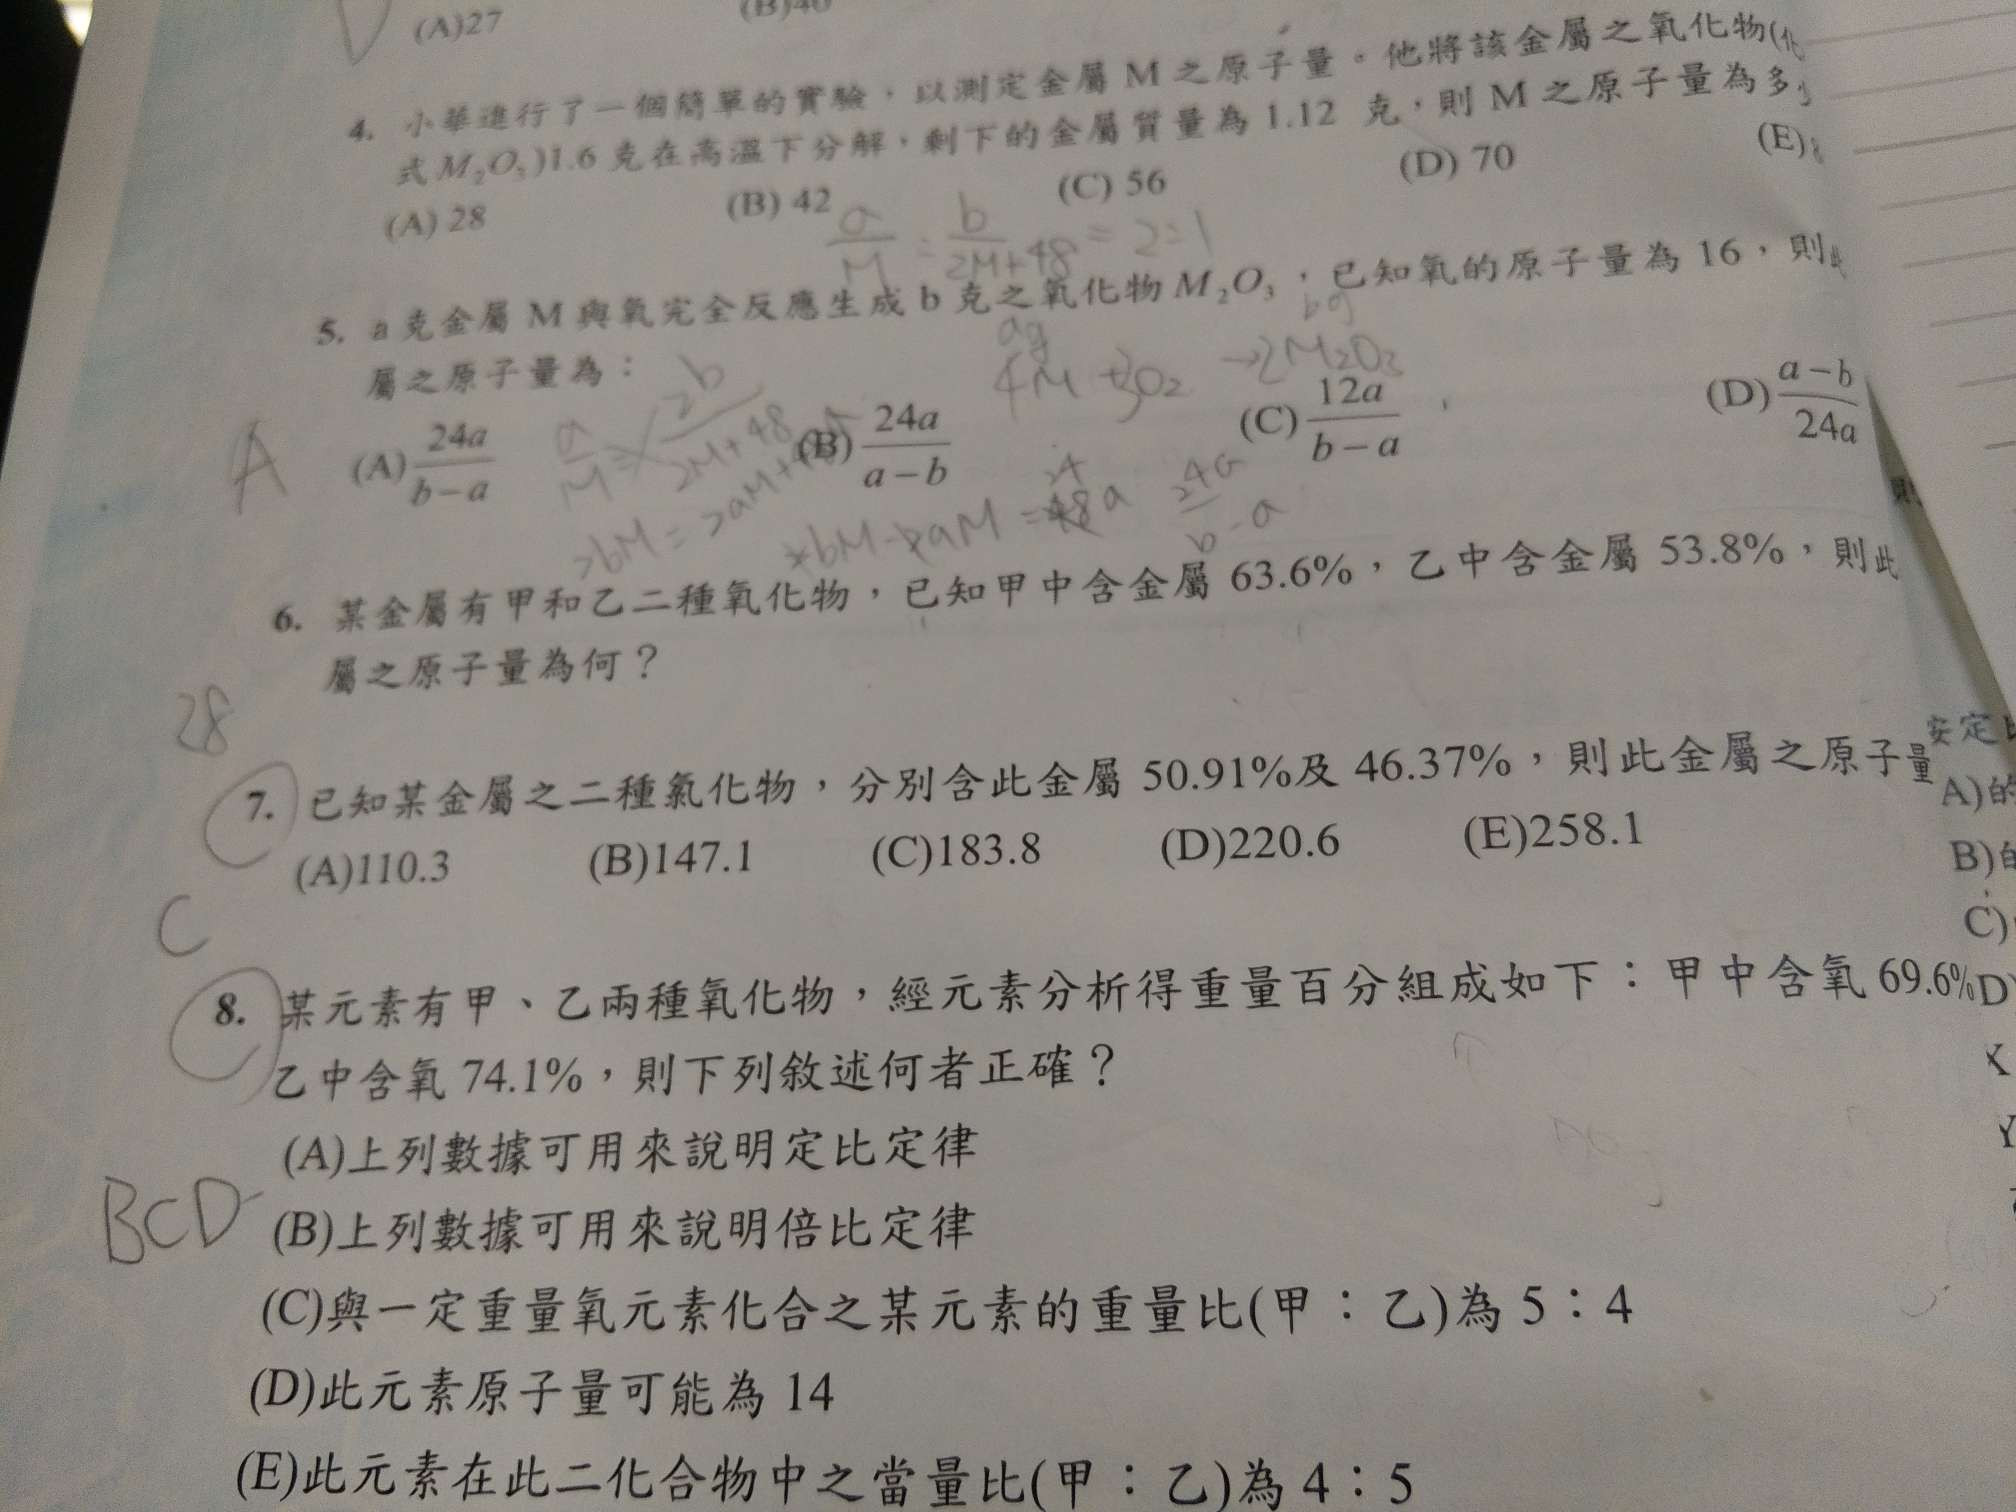 (A)27
(B)40
4. 小華進行了一個簡單的實驗，以測定金屬 M 之原子量。他將該金屬之氧化物(化
式 M₂O₃)1.6 克在高溫下分解，剩下的金屬質量為 1.12 克，則 M 之原子量為多少
(A) 28 (B) 42 (C) 56 (D) 70 (E)
a/M : b/2M+48 = 2:1
5. a 克金屬 M 與氧完全反應生成 b 克之氧化物 M₂O₃，已知氧的原子量為 16，則此
屬之原子量為：
ag bg
4M + 3O2 → 2M2O3
A
(A) 24a/b−a (B) 24a/a−b (C) 12a/b−a (D) a−b/24a
a/M = 2b/2M+48
24a/b-a
6. 某金屬有甲和乙二種氧化物，已知甲中含金屬 63.6%，乙中含金屬 53.8%，則此
屬之原子量為何？
28
7. 已知某金屬之二種氯化物，分別含此金屬 50.91%及 46.37%，則此金屬之原子量
(A)110.3 (B)147.1 (C)183.8 (D)220.6 (E)258.1
C
8. 某元素有甲、乙兩種氧化物，經元素分析得重量百分組成如下：甲中含氧 69.6%
乙中含氧 74.1%，則下列敘述何者正確？
(A)上列數據可用來說明定比定律
BCD
(B)上列數據可用來說明倍比定律
(C)與一定重量氧元素化合之某元素的重量比(甲：乙)為 5：4
(D)此元素原子量可能為 14
(E)此元素在此二化合物中之當量比(甲：乙)為 4：5
安定
A)的
B)
C)
D)
X
Y